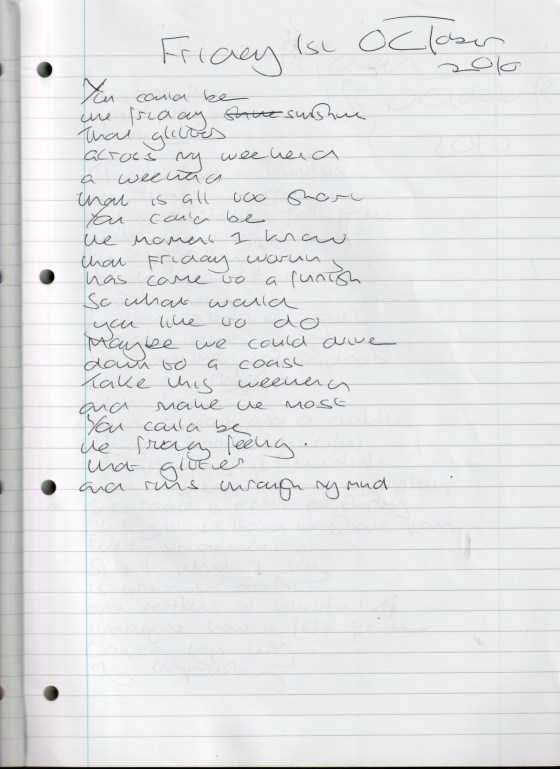 Friday 1st October
2010
You could be
the friday shine sunshine
that glitters
across my weekend
a weekend
that is all too short
You could be
the moment I know
that Friday working
has come to a finish
So what would
you like to do
Maybe we could drive
down to a coast
Take this weekend
and make the most
You could be
the friday feeling.
that glitters
and runs through my mind